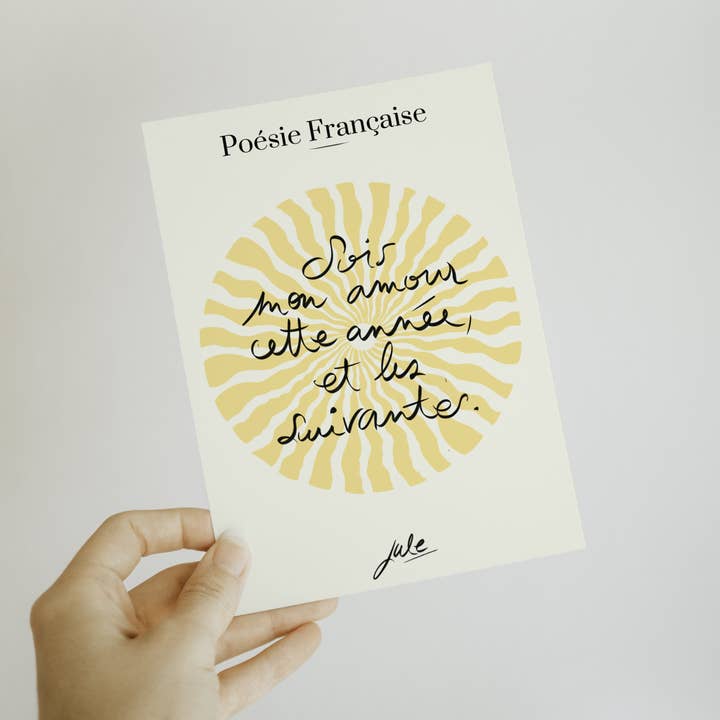 Poésie Française
Sois
mon amour
cette année,
et les
suivantes.
Jule